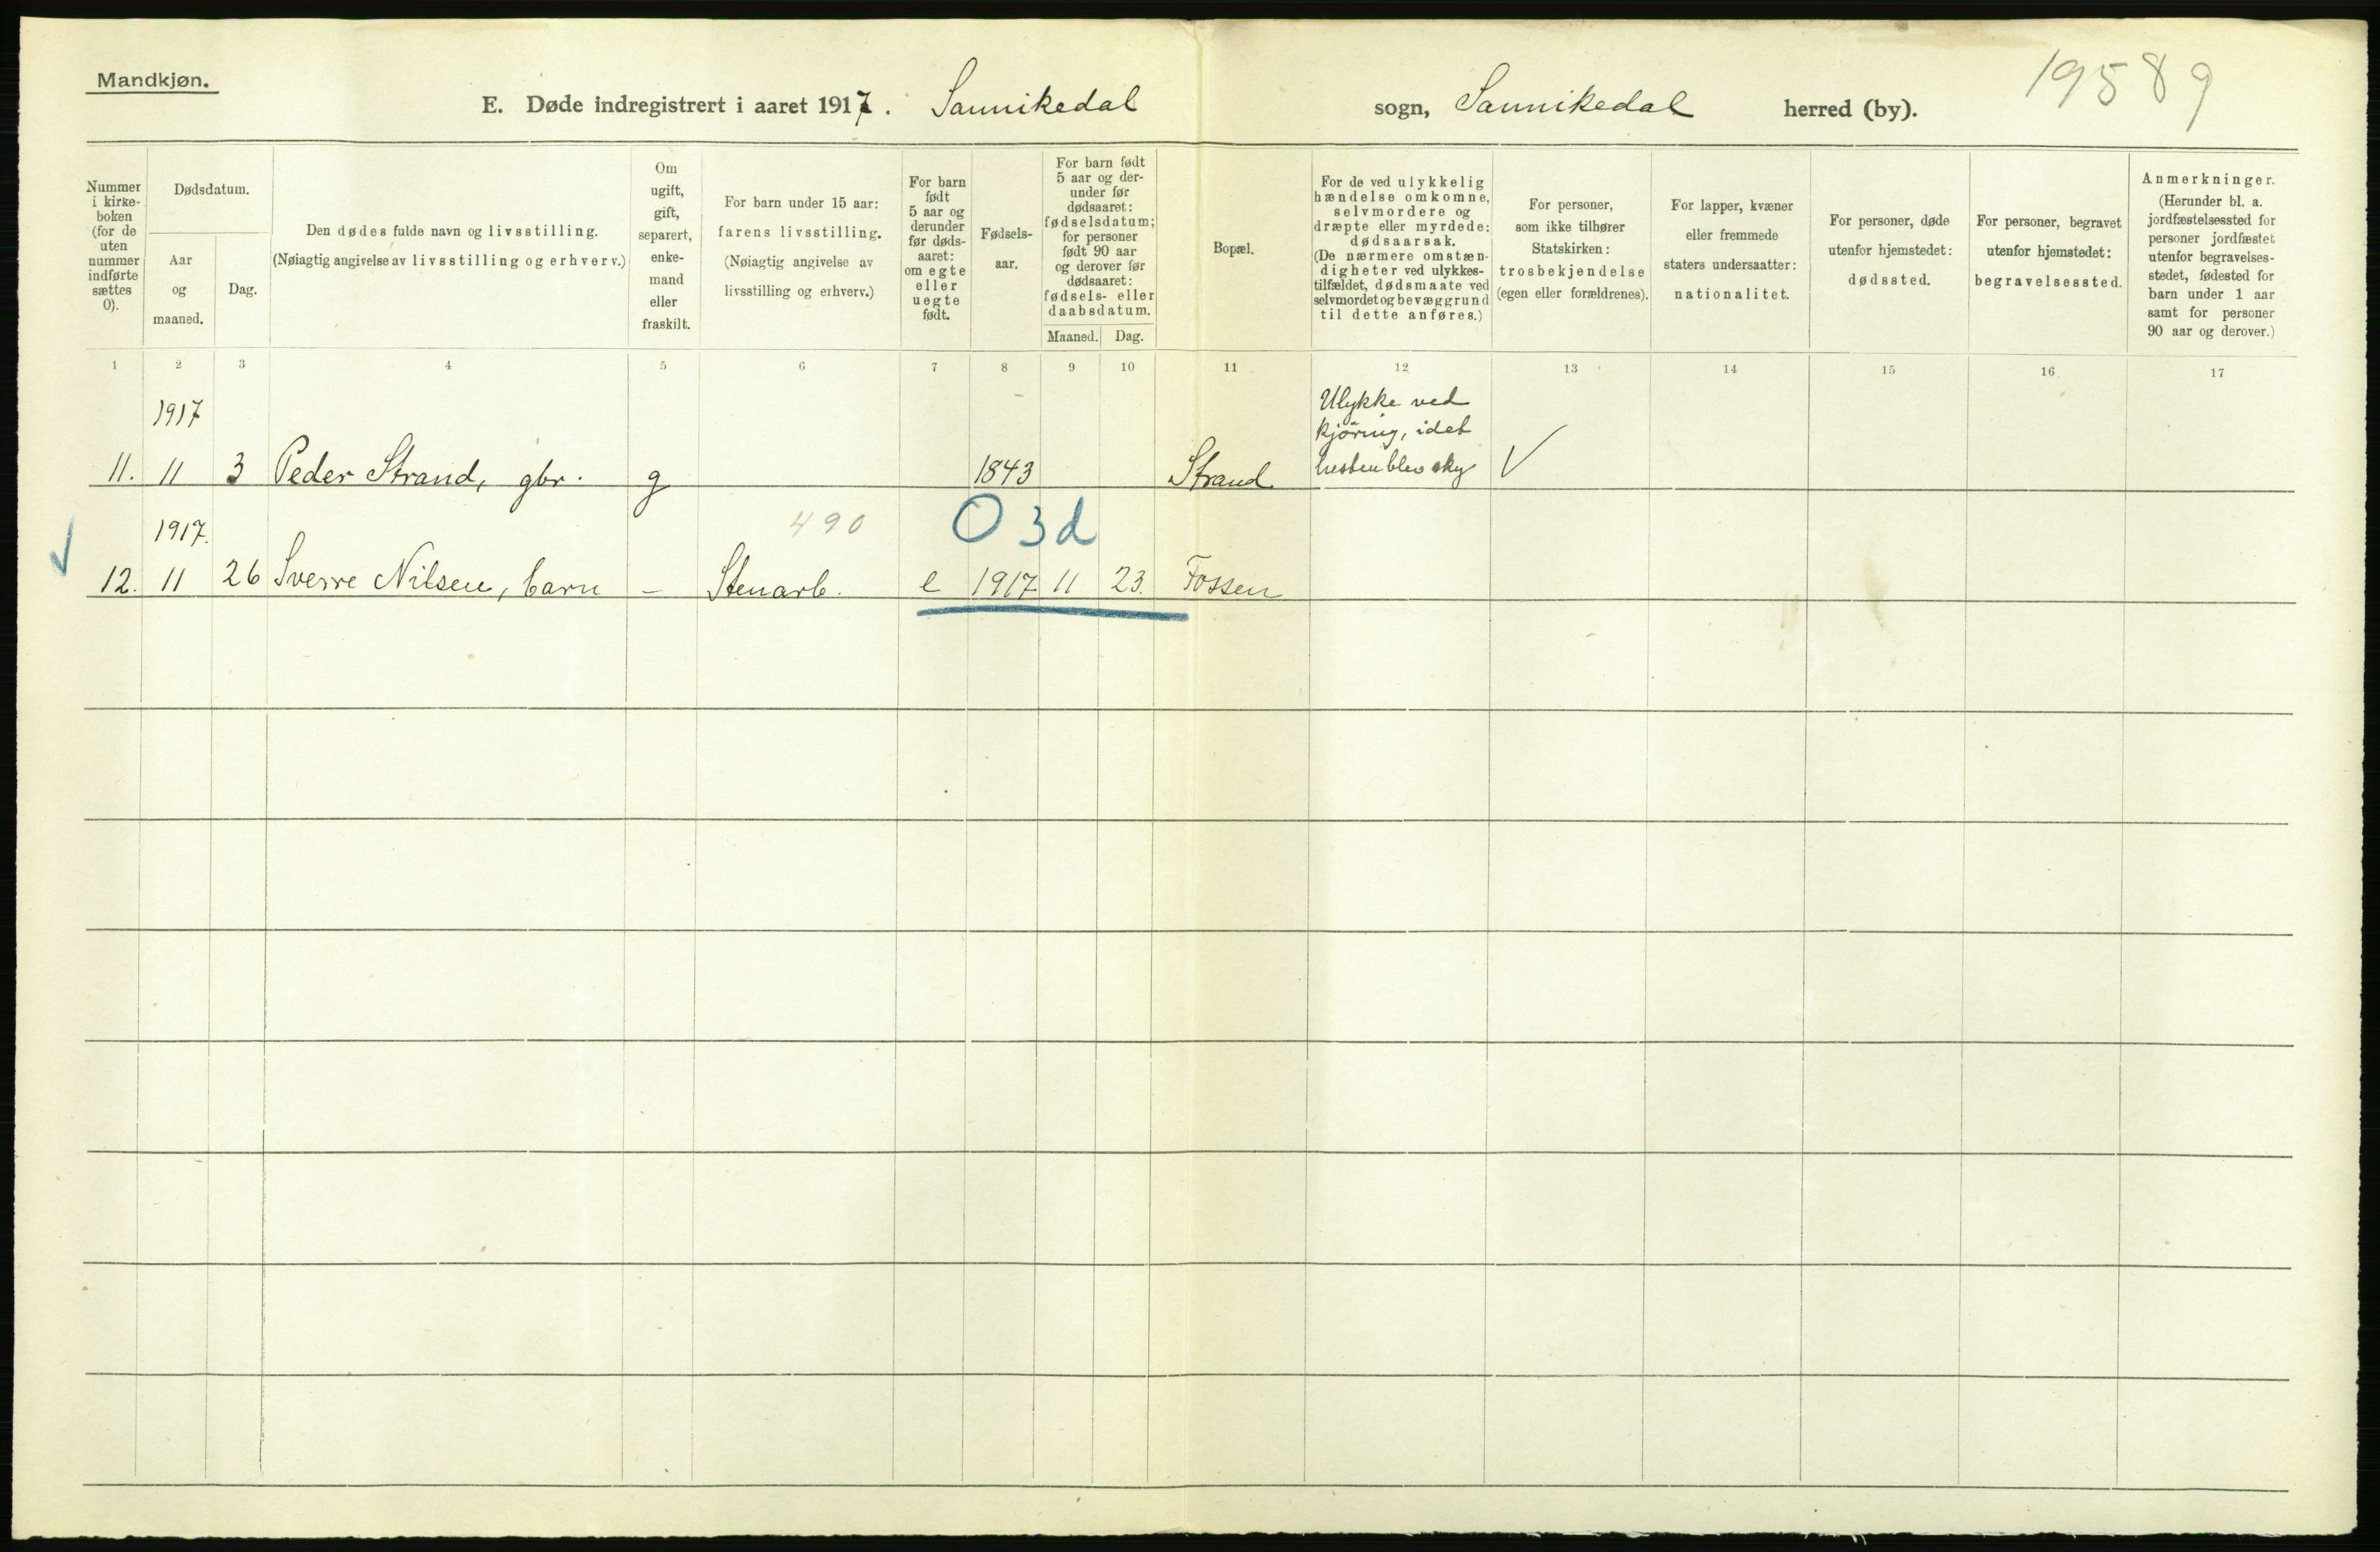 Mandkjøn.
E. Døde indregistrert i aaret 1917. Sannikedal sogn, Sannikedal herred (by).
19589
Nummer i kirke-boken (for de uten nummer indførte sættes 0).
Dødsdatum.
Aar og maaned.
Dag.
Den dødes fulde navn og livsstilling.
(Nøiagtig angivelse av livsstilling og erhverv.)
Om ugift, gift, separert, enke-mand eller fraskilt.
For barn under 15 aar:
farens livsstilling.
(Nøiagtig angivelse av
livsstilling og erhverv.)
For barn født 5 aar og derunder før døds-aaret: om egte eller uegte født.
Fødsels-aar.
For barn født 5 aar og der-under før dødsaaret: fødselsdatum; for personer født 90 aar og derover før dødsaaret: fødsels- eller daabsdatum.
Maaned. Dag.
Bopæl.
For de ved ulykkelig
hændelse omkomne,
selvmordere og
dræpte eller myrdede:
dødsaarsak.
(De nærmere omstæn-
digheter ved ulykkes-
tilfældet, dødsmaate ved
selvmordet og bevæggrund
til dette anføres.)
For personer,
som ikke tilhører
Statskirken:
trosbekjendelse
(egen eller forældrenes).
For lapper, kvæner
eller fremmede
staters undersaatter:
nationalitet.
For personer, døde
utenfor hjemstedet:
dødssted.
For personer, begravet
utenfor hjemstedet:
begravelsessted.
Anmerkninger.
(Herunder bl. a.
jordfæstelsessted for
personer jordfæstet
utenfor begravelses-
stedet, fødested for
barn under 1 aar
samt for personer
90 aar og derover.)
1 2 3 4 5 6 7 8 9 10 11 12 13 14 15 16 17
1917
Ulykke ved
kjöring, idet
hesten blev sky
11. 11 3 Peder Strand, gbr. g 1843 Strand ✓
1917. 490 O 3d
✓ 12. 11 26 Sverre Nilsen, barn – Stenarb. e 1917 11 23. Fossen